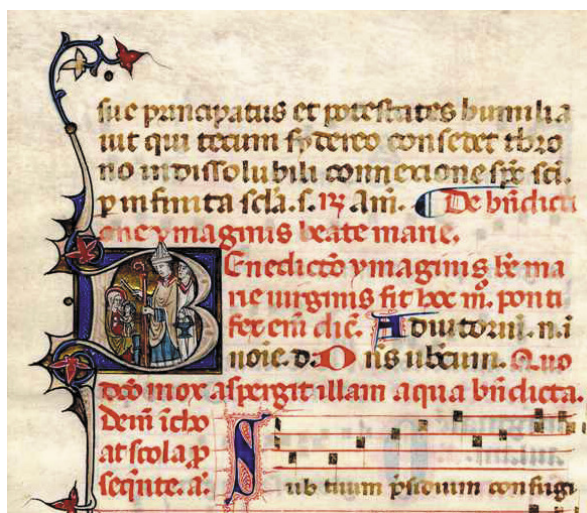 sue principatus et potestates humilia
uit qui tecum sydereo consedet thro
no indissolubili connexione sp̄s sc̄i.
p infinita sc̄la. s. R Am̄. De bn̄dicti
one ymaginis beate marie.
Benedictō ymaginis bē ma
rie uirginis fit hoc mō. ponti
fex em̄ dic̄. Adiutoriū. n. i
noīe. d. Dn̄s ubcum. Quo
dcō mox aspergit illam aqua bn̄dicta.
Dem̄ īcho
at scola p
seqn̄te. a.̄ Sub tuum p̄sidium confugi